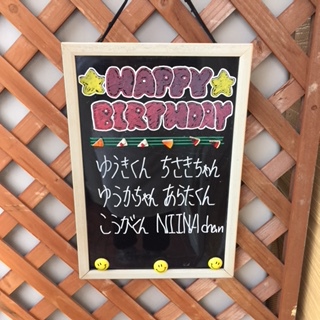 HAPPY
BIRTHDAY
ゆうきくん ちさきちゃん
ゆうかちゃん あらたくん
こうがくん NIINA chan